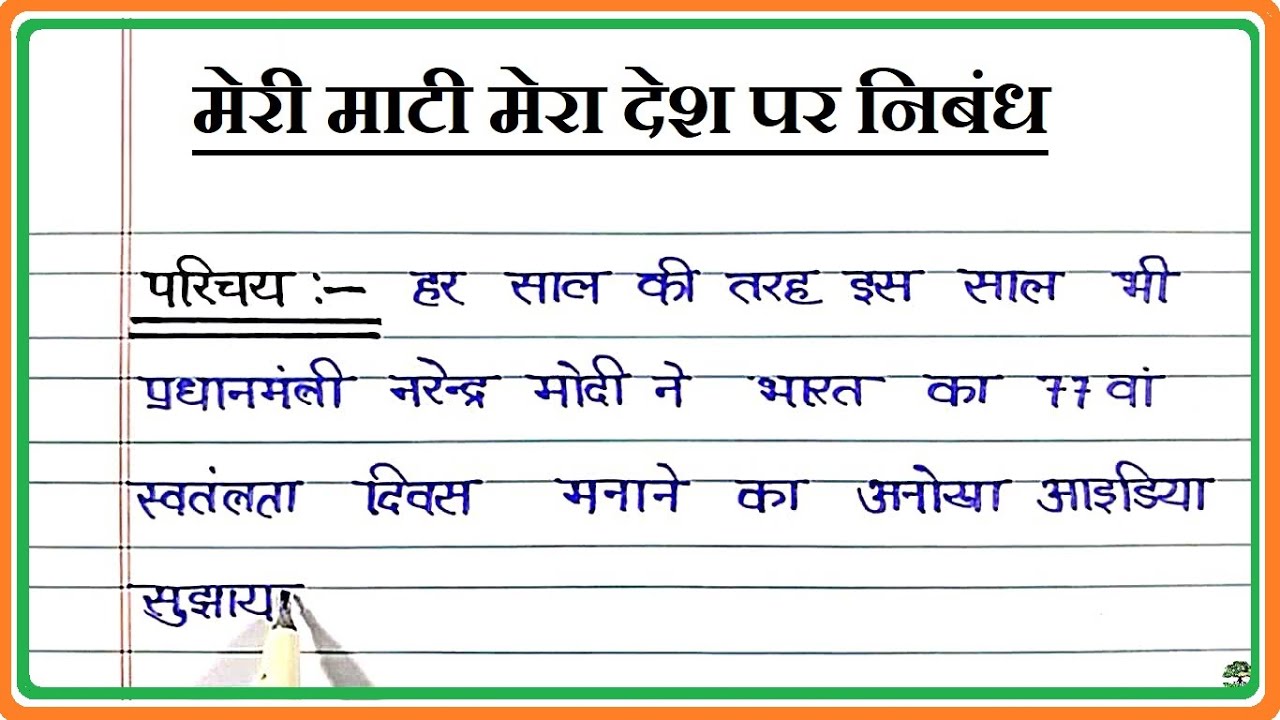 मेरी माटी मेरा देश पर निबंध
परिचय :- हर साल की तरह इस साल भी
प्रधानमंत्री नरेन्द्र मोदी ने भारत का 77 वां
स्वतंत्रता दिवस मनाने का अनोखा आइडिया
सुझाया